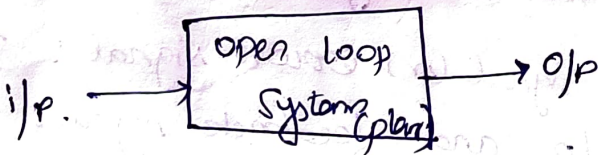 open loop
i/p.
System
(plant)
O/p